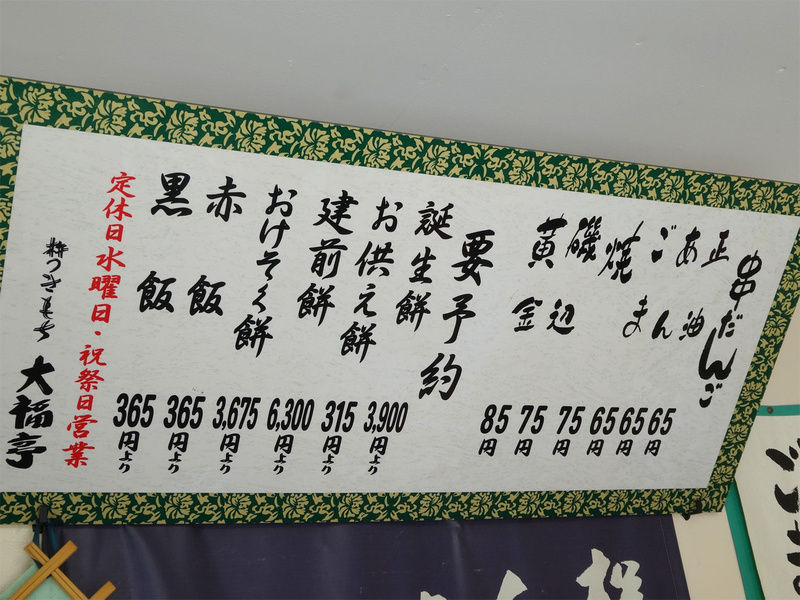 串だんご
正油 65円
あん 65円
ごま 65円
焼 75円
磯辺 75円
黄金 85円
要予約
誕生餅 3,900円より
お供え餅 315円より
建前餅 6,300円より
おけそく餅 3,675円より
赤飯 365円より
黒飯 365円より
定休日水曜日・祝祭日営業
大福亭